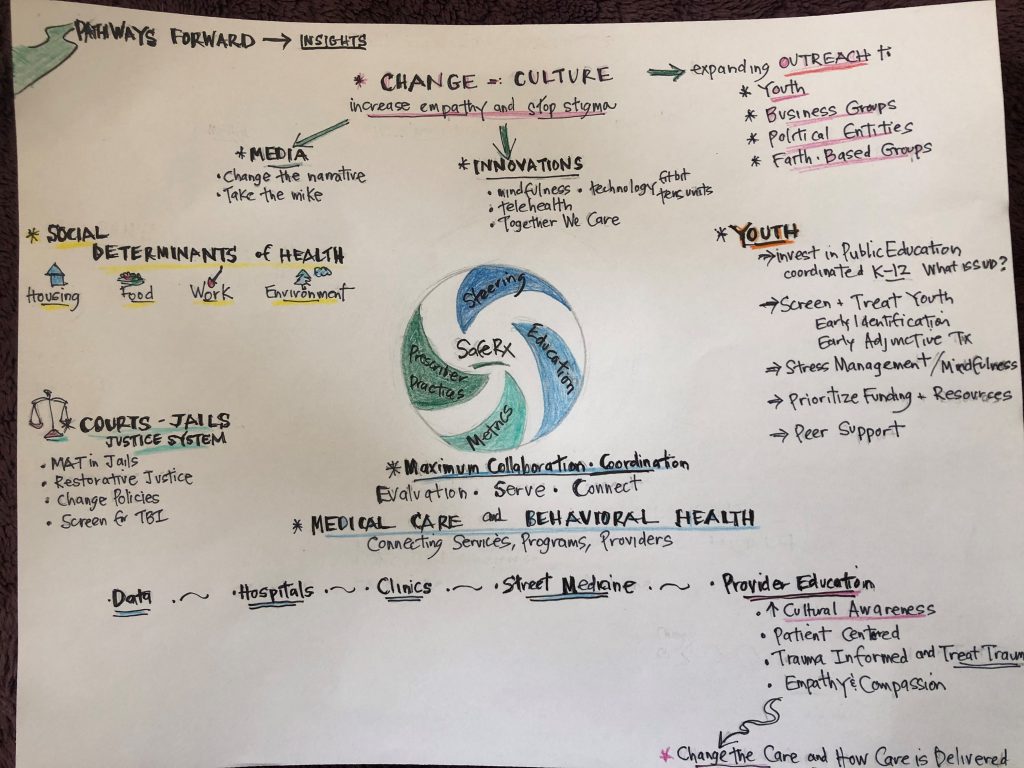 PATHWAYS FORWARD → INSIGHTS
* CHANGE = CULTURE
increase empathy and stop stigma
→ expanding OUTREACH to
* Youth
* Business Groups
* Political Entities
* Faith-Based Groups
* MEDIA
• Change the narrative
• Take the mike
* INNOVATIONS
• mindfulness • technology fitbit
tens units
• telehealth
• Together We Care
* SOCIAL
DETERMINANTS of HEALTH
Housing Food Work Environment
* YOUTH
→ invest in Public Education
coordinated K-12 What is up?
→ Screen + Treat Youth
Early Identification
Early Adjunctive Tx
→ Stress Management/Mindfulness
→ Prioritize Funding + Resources
→ Peer Support
Steering
Education
Metrics
Prescriber
Practices
SafeRx
* COURTS - JAILS
JUSTICE SYSTEM
• MAT in Jails
• Restorative Justice
• Change Policies
• Screen for TBI
* Maximum Collaboration • Coordination
Evaluation • Serve • Connect
* MEDICAL CARE and BEHAVIORAL HEALTH
Connecting Services, Programs, Providers
• Data • ~ • Hospitals ~ • Clinics • ~ • Street Medicine ~ • Provider Education
• ↑ Cultural Awareness
• Patient Centered
• Trauma Informed and Treat Traum
• Empathy & Compassion
* Change the Care and How Care is Delivered